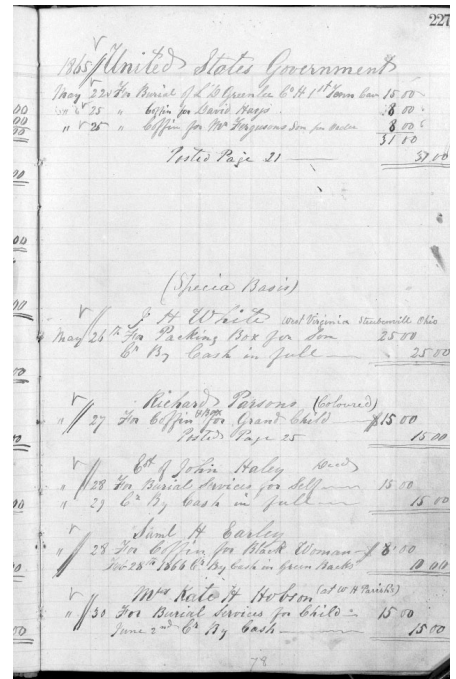 227
1865 United States Government
May 22 For Burial of L. D. Greenlee Co H 1st Tenn Cav 15 00
" 25 " Coffin for David Hays 8 00
" 25 " Coffin for Mr Fergusons Son per Order 8 00
31 00
Posted Page 21 31 00
(Specia Basis)
J H White West Virginia Steubenville Ohio
May 26th For Packing Box for Son 25 00
Cr By Cash in full 25 00
Richard Parsons (Coloured)
" 27 For Coffin & Box for Grand Child $15 00
Posted Page 25 15 00
Est of John Haley Decd
" 28 For Burial Services for Self 15 00
" 29 Cr By Cash in full 15 00
Saml H Earley
" 28 For Coffin for Black Woman $ 8 00
28th 1866 Cr By Cash in Green Backs 10 00
Mrs Kate H Hobson (at W H Parish's)
" 30 For Burial Services for Child 15 00
June 2nd Cr By Cash 15 00
78